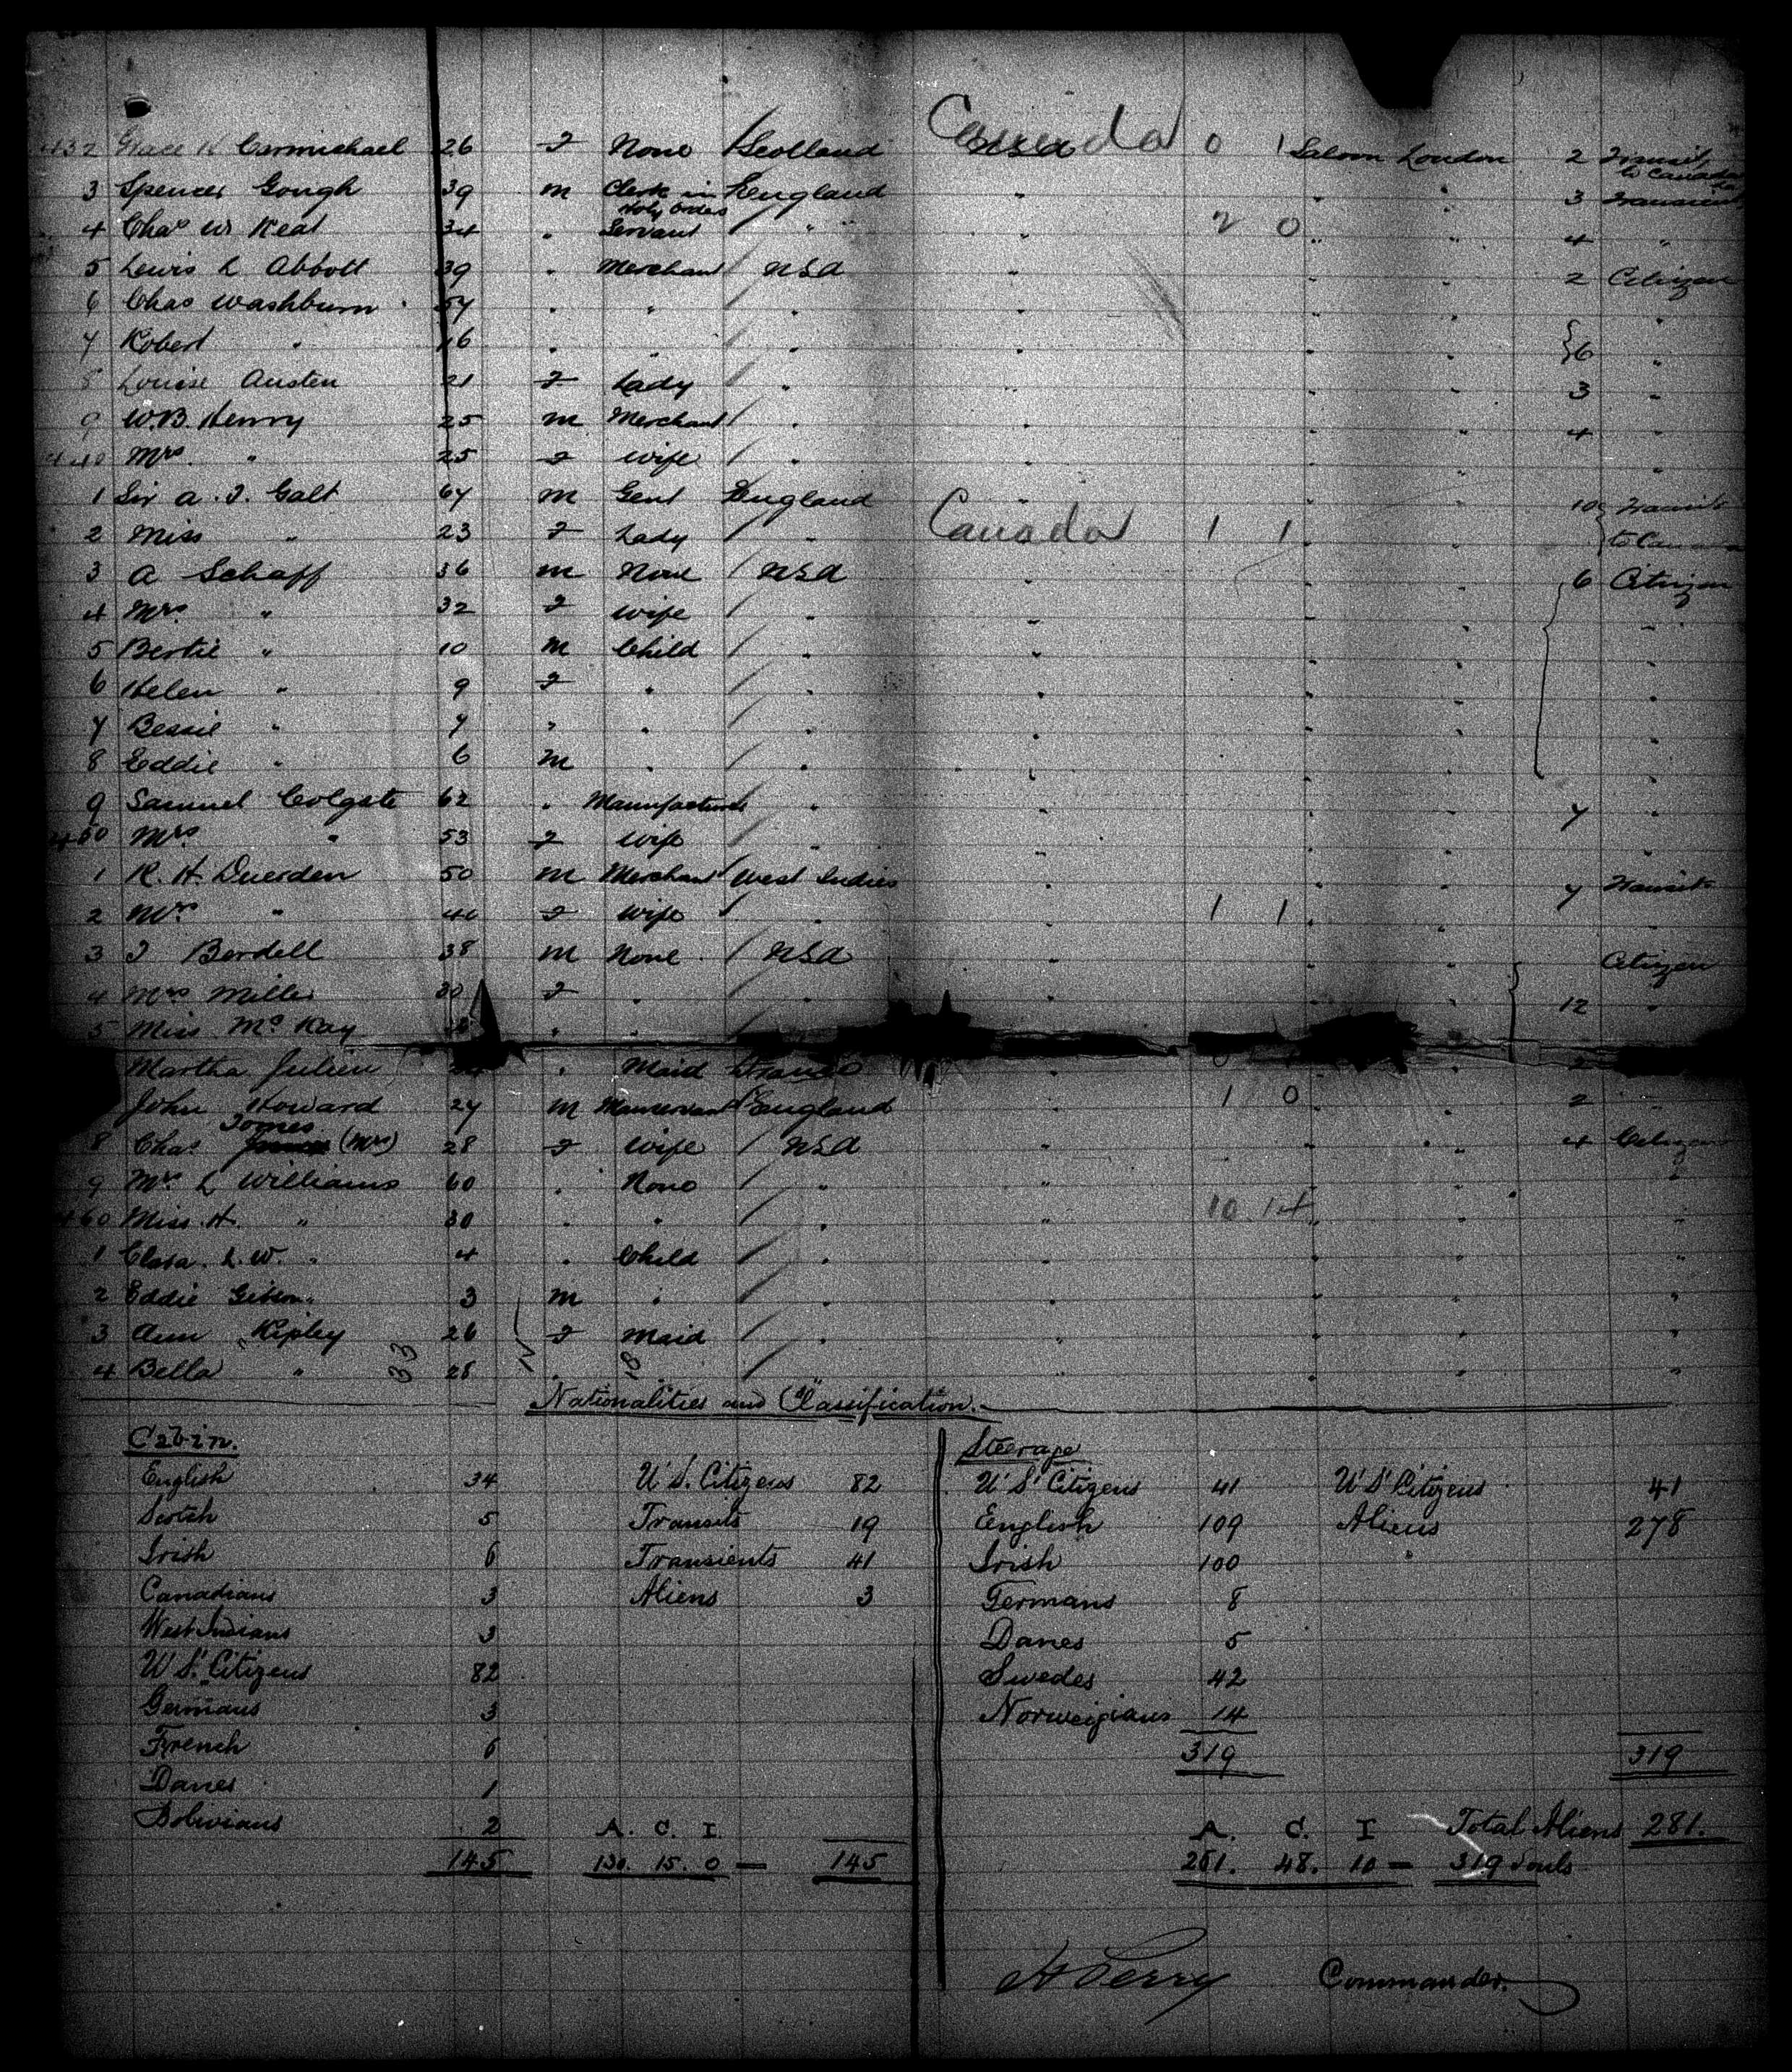 432 Grace H Carmichael 26 F None Scotland Canada 0 1 Saloon London 2 Transit to Canada
3 Spencer Gough 39 M Clerk in Holy Orders England " 3 Transient
4 Chas W Keat 34 " Servant " " 2 0 " " 4 "
5 Lewis L Abbott 39 " Merchant USA " " " 2 Citizen
6 Chas Washburn 54 " " " " " " "
7 Robert " 16 " " " " " " } 6 "
8 Louise Austen 21 F Lady " " " " 3 "
9 W.B. Henry 25 M Merchant " " " " 4 "
440 Mrs " 25 F Wife " " " " "
1 Sir A. T. Galt 67 M Gent England " " " 10 Transit
2 Miss " 23 F Lady " Canada 1 1 " " to Canada
3 A Schaff 36 M None USA " " " 6 Citizen
4 Mrs " 32 F Wife " " " " "
5 Bertie " 10 M Child " " " " "
6 Helen " 9 F " " " " " "
7 Bessie " 7 " " " " " " "
8 Eddie " 6 M " " " " " "
9 Samuel Colgate 62 " Manufacturer " " " " 7 "
450 Mrs " 53 F Wife " " " " "
1 R. H. Duerden 50 M Merchant West Indies " " " 7 Transit
2 Mrs " 40 F Wife " " 1 1 " " "
3 J Berdell 38 M None USA " " " Citizen
4 Mrs Miller 30 F " " " " " 12 "
5 Miss McKay " "
Martha Julien " Maid France 2
John Howard 27 M Manservant England 1 0 " " 2 "
8 Chas Tomes (Mrs) 28 F Wife USA " " " 4 Citizen
9 Mrs L Williams 60 " None " " " " "
460 Miss H. " 30 " " " " 10 14 " " "
1 Clara L. W. " 4 " Child " " " " "
2 Eddie " 3 M " " " " " "
3 Ann Ripley 26 F Maid " " " " "
4 Bella " 33 28 " " " " "
Nationalities and Classification.
Cabin.
English 34 U S. Citizens 82
Scotch 5 Transits 19
Irish 6 Transients 41
Canadians 3 Aliens 3
West Indians 3
U S. Citizens 82
Germans 3
French 6
Danes 1
Bolivians 2 A. C. I.
145 130. 15. 0 — 145
Steerage
U S Citizens 41 U S Citizens 41
English 109 Aliens 278
Irish 100
Germans 8
Danes 5
Swedes 42
Norwegians 14
319 319
A. C. I Total Aliens 281.
261. 48. 10 — 319 Souls
H Perry Commander.